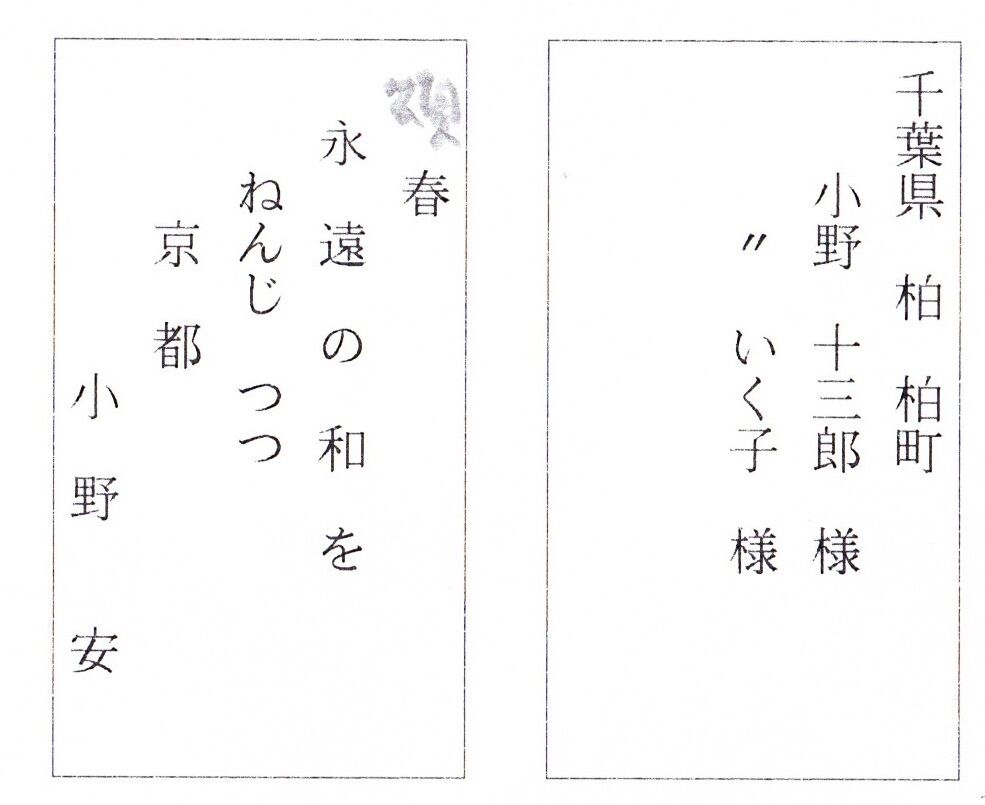 千葉県 柏 柏町
小野 十三郎 様
〃 いく子 様
頌
春
永遠の和を
ねんじつつ
京都
小野 安